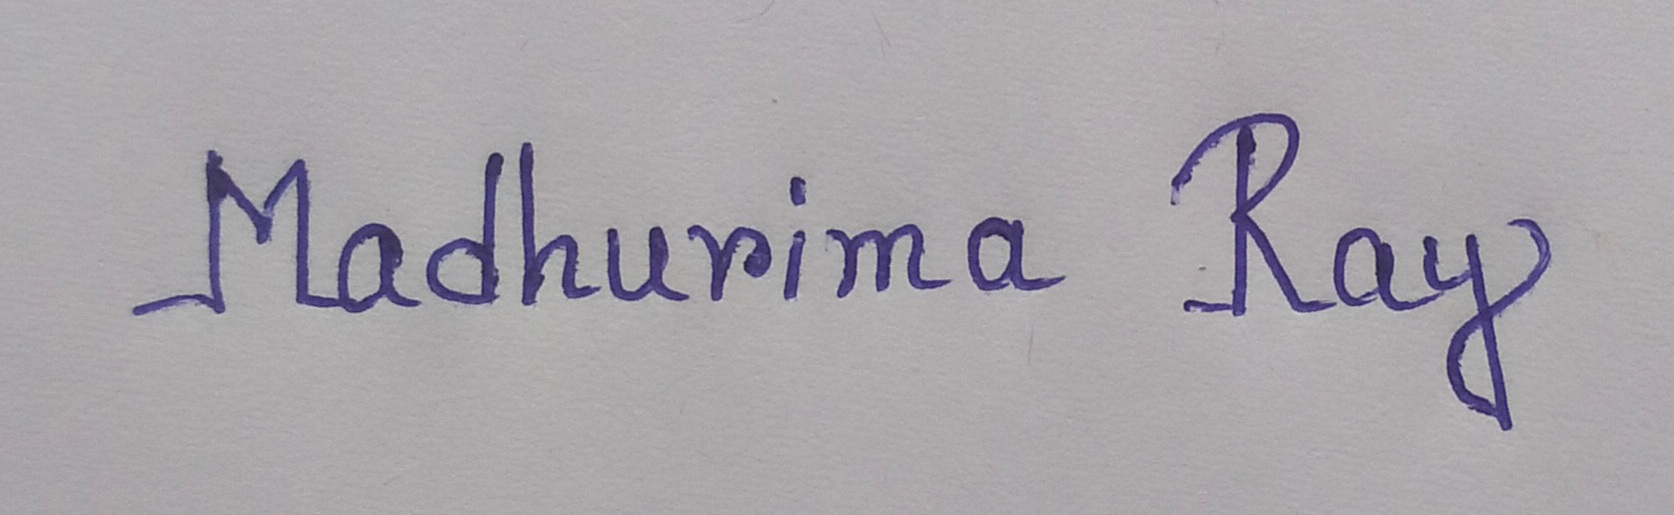 Madhurima Ray